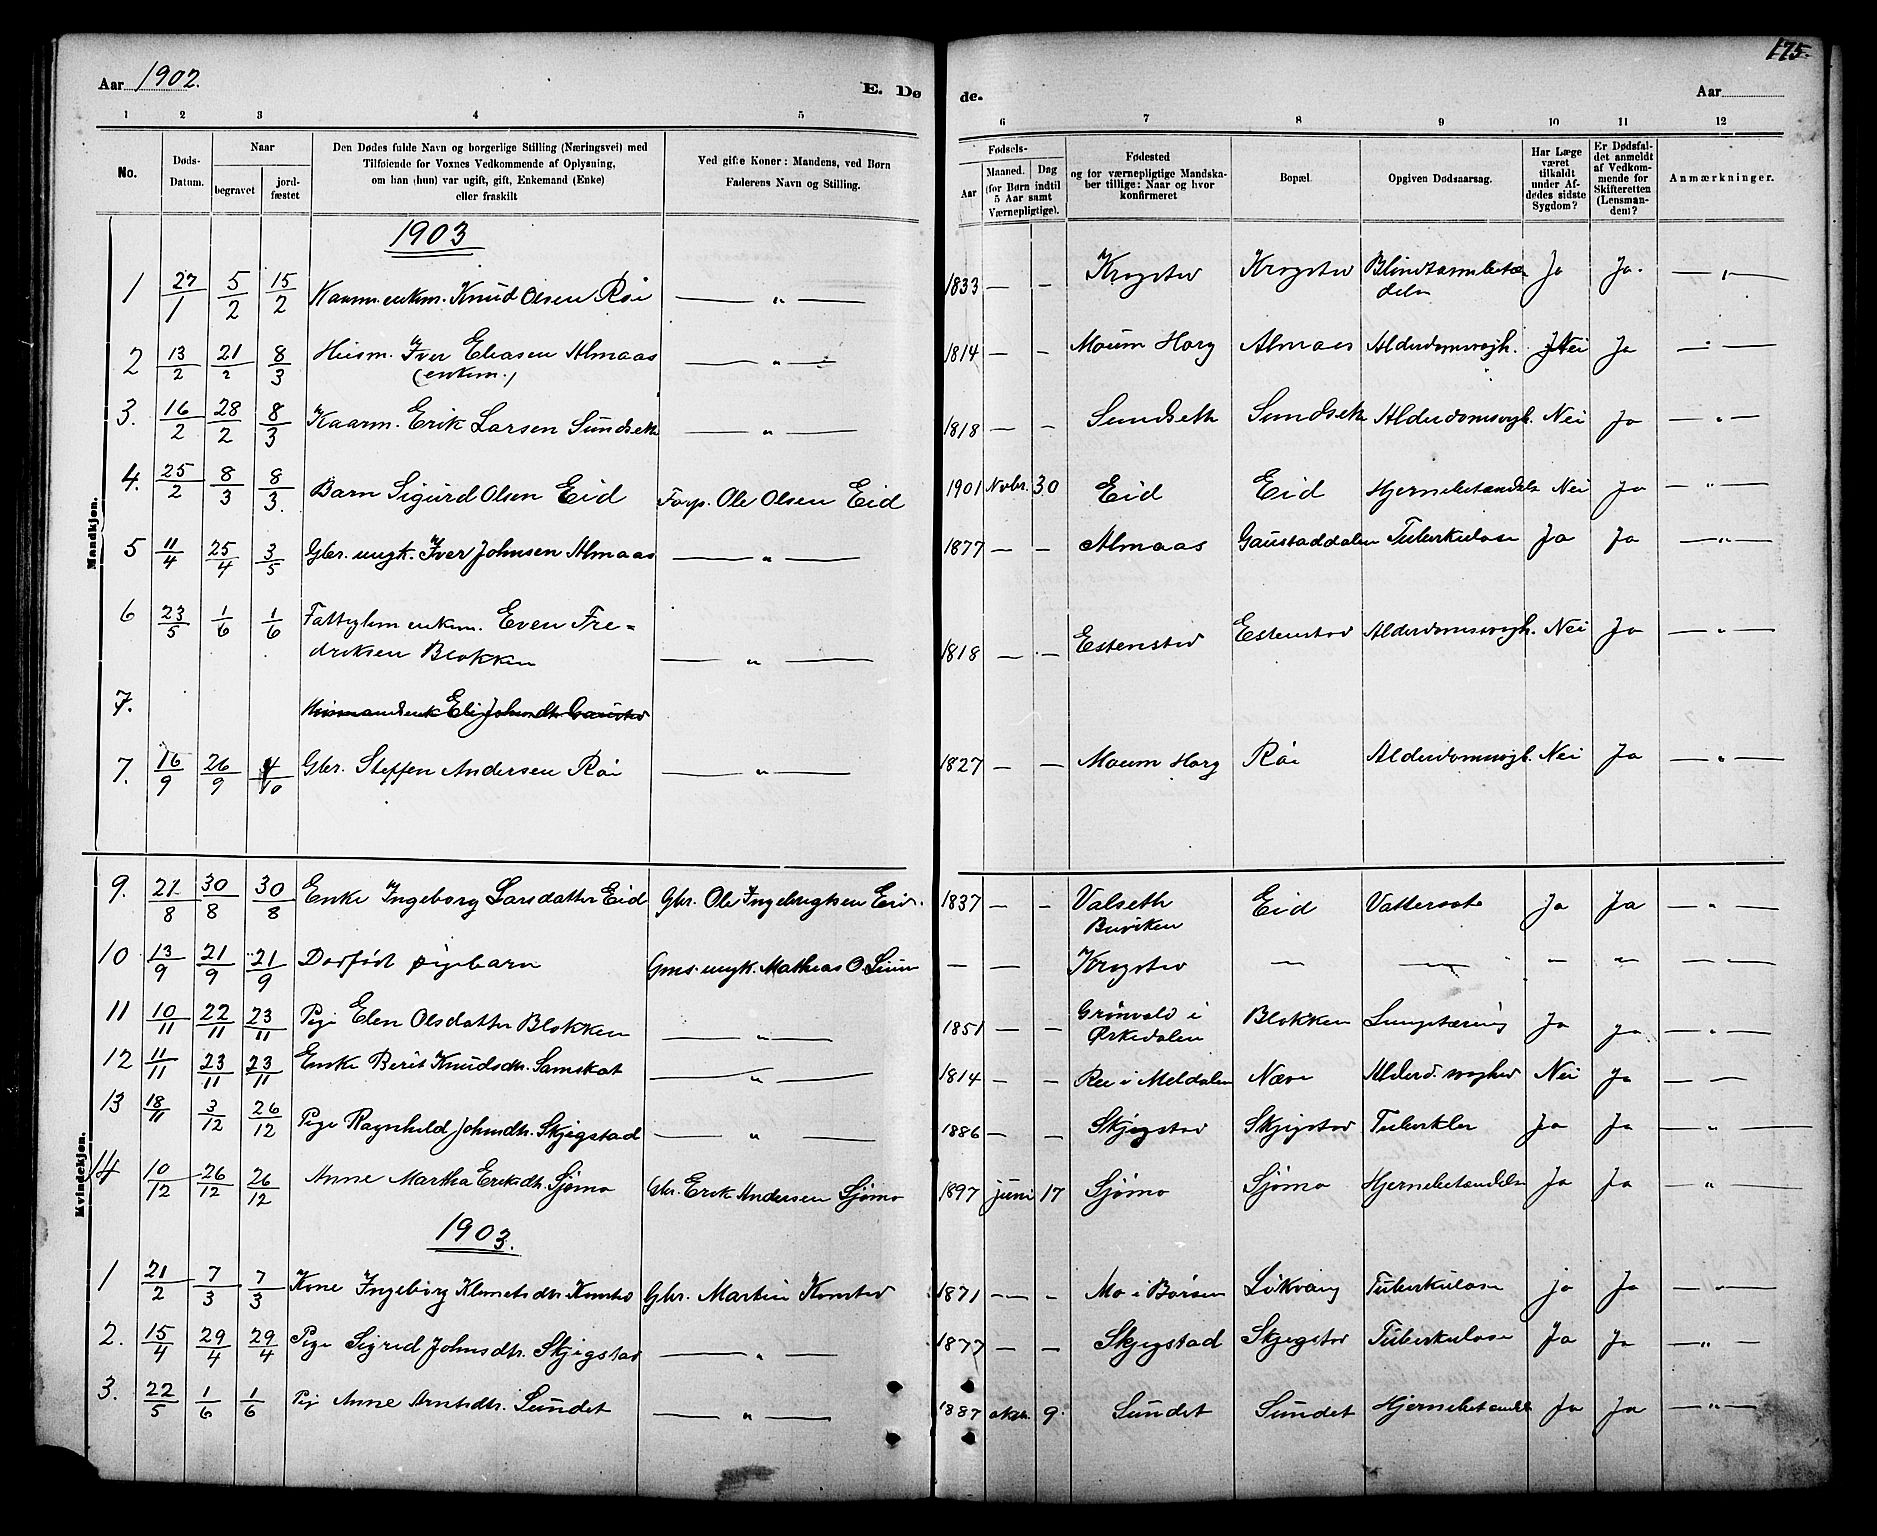 175.
Aar 1902. E. Dø de. Aar
1 2 3 4 5 6 7 8 9 10 11 12
No. Døds-Datum. Naar begravet jordfæstet Den Dødes fulde Navn og borgerlige Stilling (Næringsvei) med Tilføiende for Voxnes Vedkommende af Oplysning, om han (hun) var ugift, gift, Enkemand (Enke) eller fraskilt Ved gifte Koner: Mandens, ved Børn Faderens Navn og Stilling. Fødsels- Aar Maaned. Dag (for Børn indtil 5 Aar samt Værnepligtige). Fødested og for værnepligtige Mandskaber tillige: Naar og hvor konfirmeret Bopæl. Opgiven Dødsaarsag. Har Læge været tilkaldt under Afdødes sidste Sygdom? Er Dødsfaldet anmeldt af Vedkommende for Skifteretten (Lensmanden)? Anmærkninger.
Mandkjøn.
1903
1 27/1 5/2 15/2 Kaarm. enkm. Knud Olsen Røi — „ — 1833 — — Krogstad Krogstad Blindtarmbetændelse Ja Ja. — „ —
2 13/2 21/2 8/3 Husm. Iver Eliasen Almaas — „ — 1814 — — Moum Horg Almaas Alderdomssvagh. Nei Ja — „ —
(enkem.)
3. 16/2 28/2 8/3 Kaarm. Erik Larsen Sundseth — „ — 1818 — — Sundseth Sundseth Alderdomssvagh. Nei Ja — „ —
4. 25/2 8/3 8/3. Barn Sigurd Olsen Eid Forp. Ole Olsen Eid 1901 Novbr. 30 Eid Eid Hjernebetændelse Nei Ja — „ —
5 11/4 25/4 3/5 Gbr. ungk. Iver Johnsen Almaas — „ — 1877 — — Almaas Gaustaddalen Tuberkulose Ja Ja — „ —
6 23/5 1/6 1/6 Fattiglem enkem. Even Fre=
driksen Blokken — „ — 1818 — — Estenstad Estenstad Alderdomssvagh. Nei Ja — „ —
7.
7. 16/9 26/9 4/10 Gbr. Steffen Andersen Røi — „ — 1827 — — Moum Horg Røi Alderdomssvgh. Nei Ja — „ —
Kvindekjøn.
9. 21/8 30/8 30/8 Enke Ingeborg Larsdatter Eid Gbr. Ole Ingebrigtsen Eid. 1837 — — Valseth Eid Vattersot Ja Ja — „ —
Buviken
10 13/9 21/9 21/9 Dødfød pigebarn Gms. ungk. Mathias O. Lium — — — Krogstad — — — „ — „ —
11 10/11 22/11 23/11 Pige Elen Olsdatter Blokken — „ — 1851 — — Grønvold i Blokken Lungetæring Ja ja — „ —
Ørkedalen
12 11/11 23/11 23/11 Enke Berit Knudsdtr. Samskot — „ — 1814 — — Ree i Meldalen Næve Alderd. svaghed Nei ja — —
13 18/11 3/12 26/12 Pige Ragnhild Johnsdtr. Skjegstad — „ — 1886 — — Skjegstad Skjegstad Tuberkler Ja Ja — „ —
14 10/12 26/12 26/12 Anne Martha Eriksdtr. Sjømo Gbr. Erik Andersen Sjømo 1897 juni 17 Sjømo Sjømo Hjernebetændelse Ja Ja — „ —
1903.
1 21/2 7/3 7/3 Kone Ingeborg Klemetsdtr. Komstad Gbr. Martin Komstad 1871 — — Mo i Børsen Løkvang Tuberkulose ja Ja — „ —
2. 15/4 29/4 29/4 Pige Sigrid Johnsdtr. Skjegstad — „ — 1877 — — Skjegstad Skjegstad Tuberkulose Ja Ja — „ —
3. 22/5 1/6 1/6 Pig Anne Arntsdtr. Sundet — „ — 1887 oktr. 9. Sundet Sundet Hjernebetændels Ja Ja — „ —